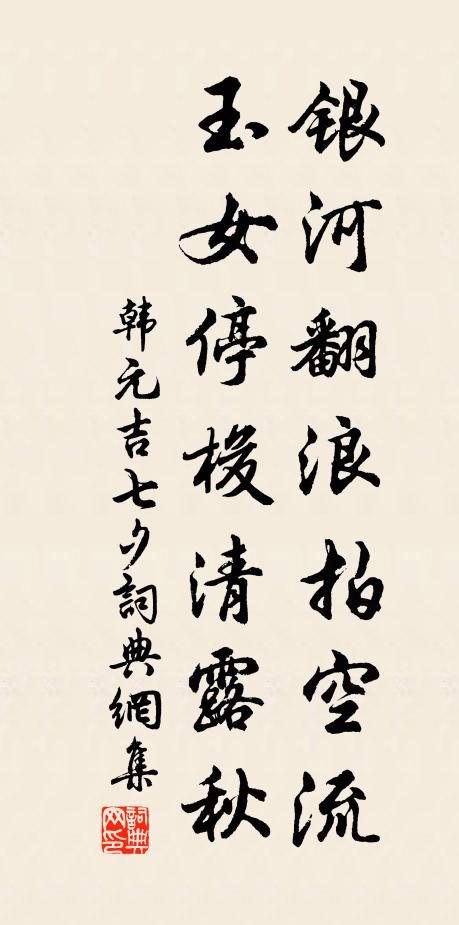 银河翻浪拍空流
玉女停梭清露秋
韩元吉七夕詞典網集
詞典网印